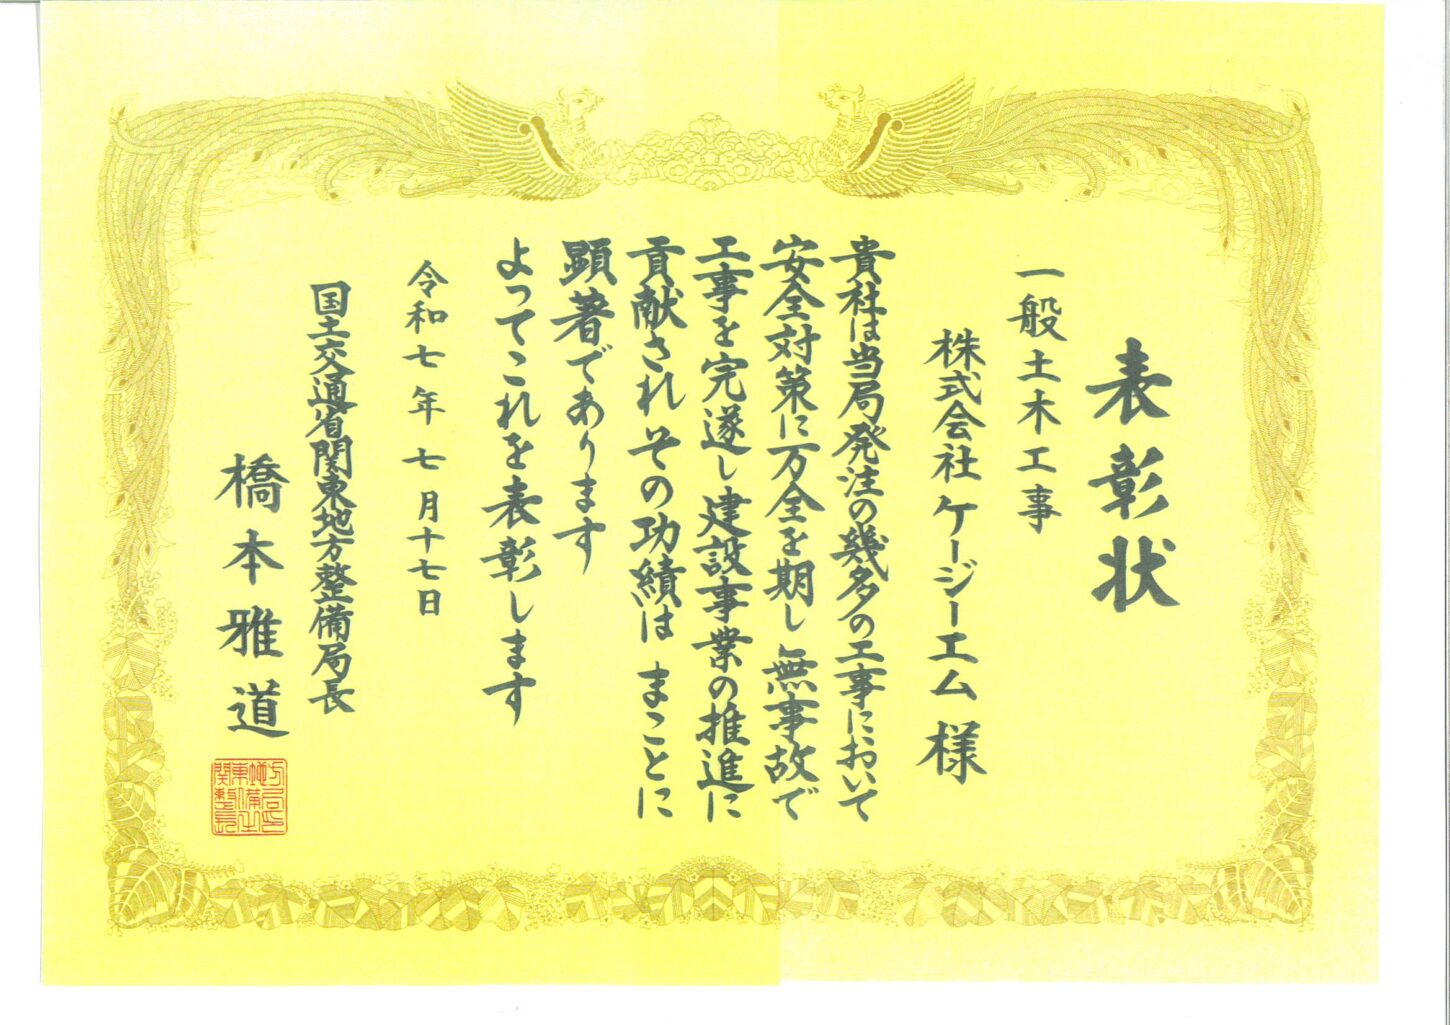 表彰状
一般土木工事
株式会社ケージーエム 様
貴社は当局発注の幾多の工事において
安全対策に万全を期し無事故で
工事を完遂し建設事業の推進に
貢献されその功績は まことに
顕著であります
よってこれを表彰します
令和七年七月十七日
国土交通省関東地方整備局長
橋本雅道